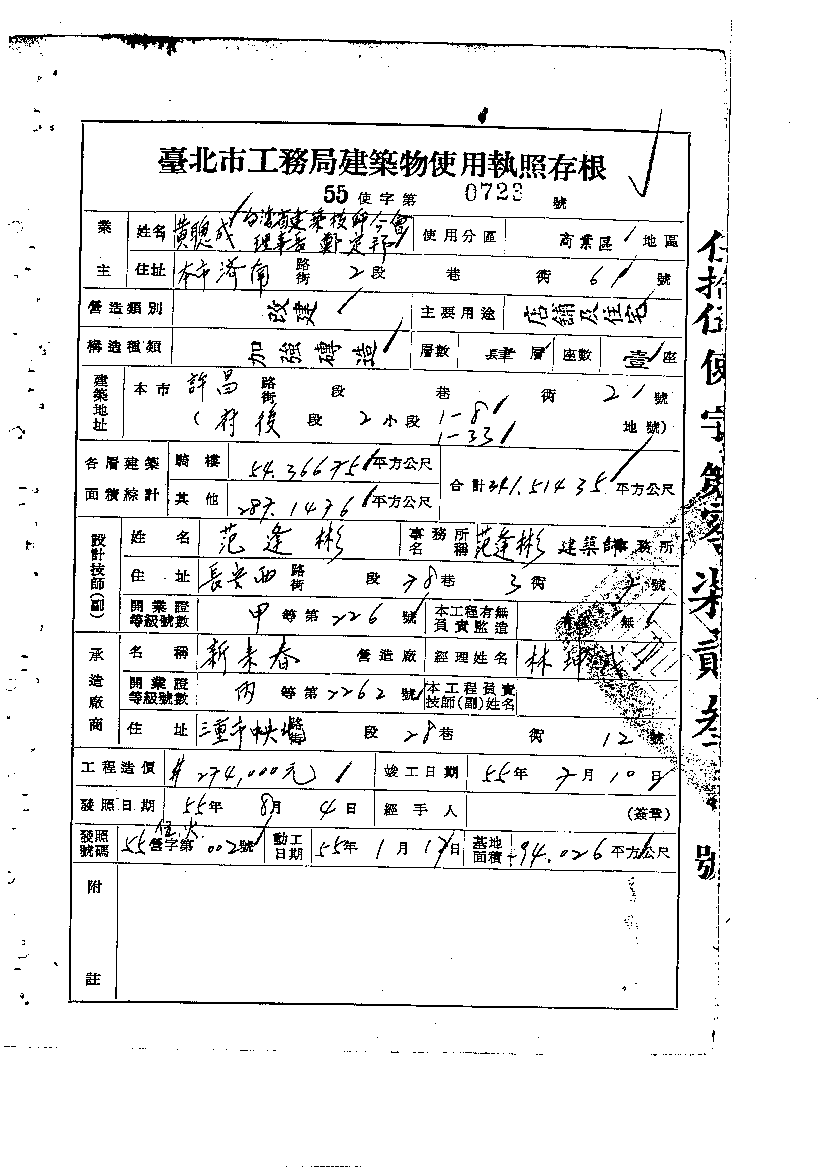 臺北市工務局建築物使用執照存根
55 使字第 0723 號
業主 姓名 黃聰成 台灣省建築技師公會理事長 鄭定邦 使用分區 商業區 地區
住址 本市濟南 路街 2段 巷 衖 6 號
營造類別 改建 主要用途 店舖及住宅
構造種類 加強磚造 層數 肆層 座數 壹座
建築地址 本市 許昌 路街 段 巷 衖 21 號
(府後 段 2 小段 1-8 1-33 地號)
各層建築面積綜計 騎樓 54.36675 平方公尺 合計 341.51435 平方公尺
其他 287.1476 平方公尺
設計技師(副) 姓名 范逢彬 事務所名稱 范逢彬 建築師事務所
住址 長安西 路街 段 78巷 3衖 號
開業證等級號數 甲 等第 226 號 本工程有無負責監造 無
承造廠商 名稱 新來春 營造廠 經理姓名 林坤成
開業證等級號數 丙 等第 2262 號 本工程負責技師(副)姓名
住址 三重市中央 段 28巷 衖 12 號
工程造價 #274,000元 竣工日期 55年 7月 10日
發照日期 55年 8月 4日 經手人 (簽章)
發照號碼 55 營字第 002號 動工日期 55年 1月 17日 基地面積 94.026 平方公尺
附註
伍拾伍使字第零柒貳叁號